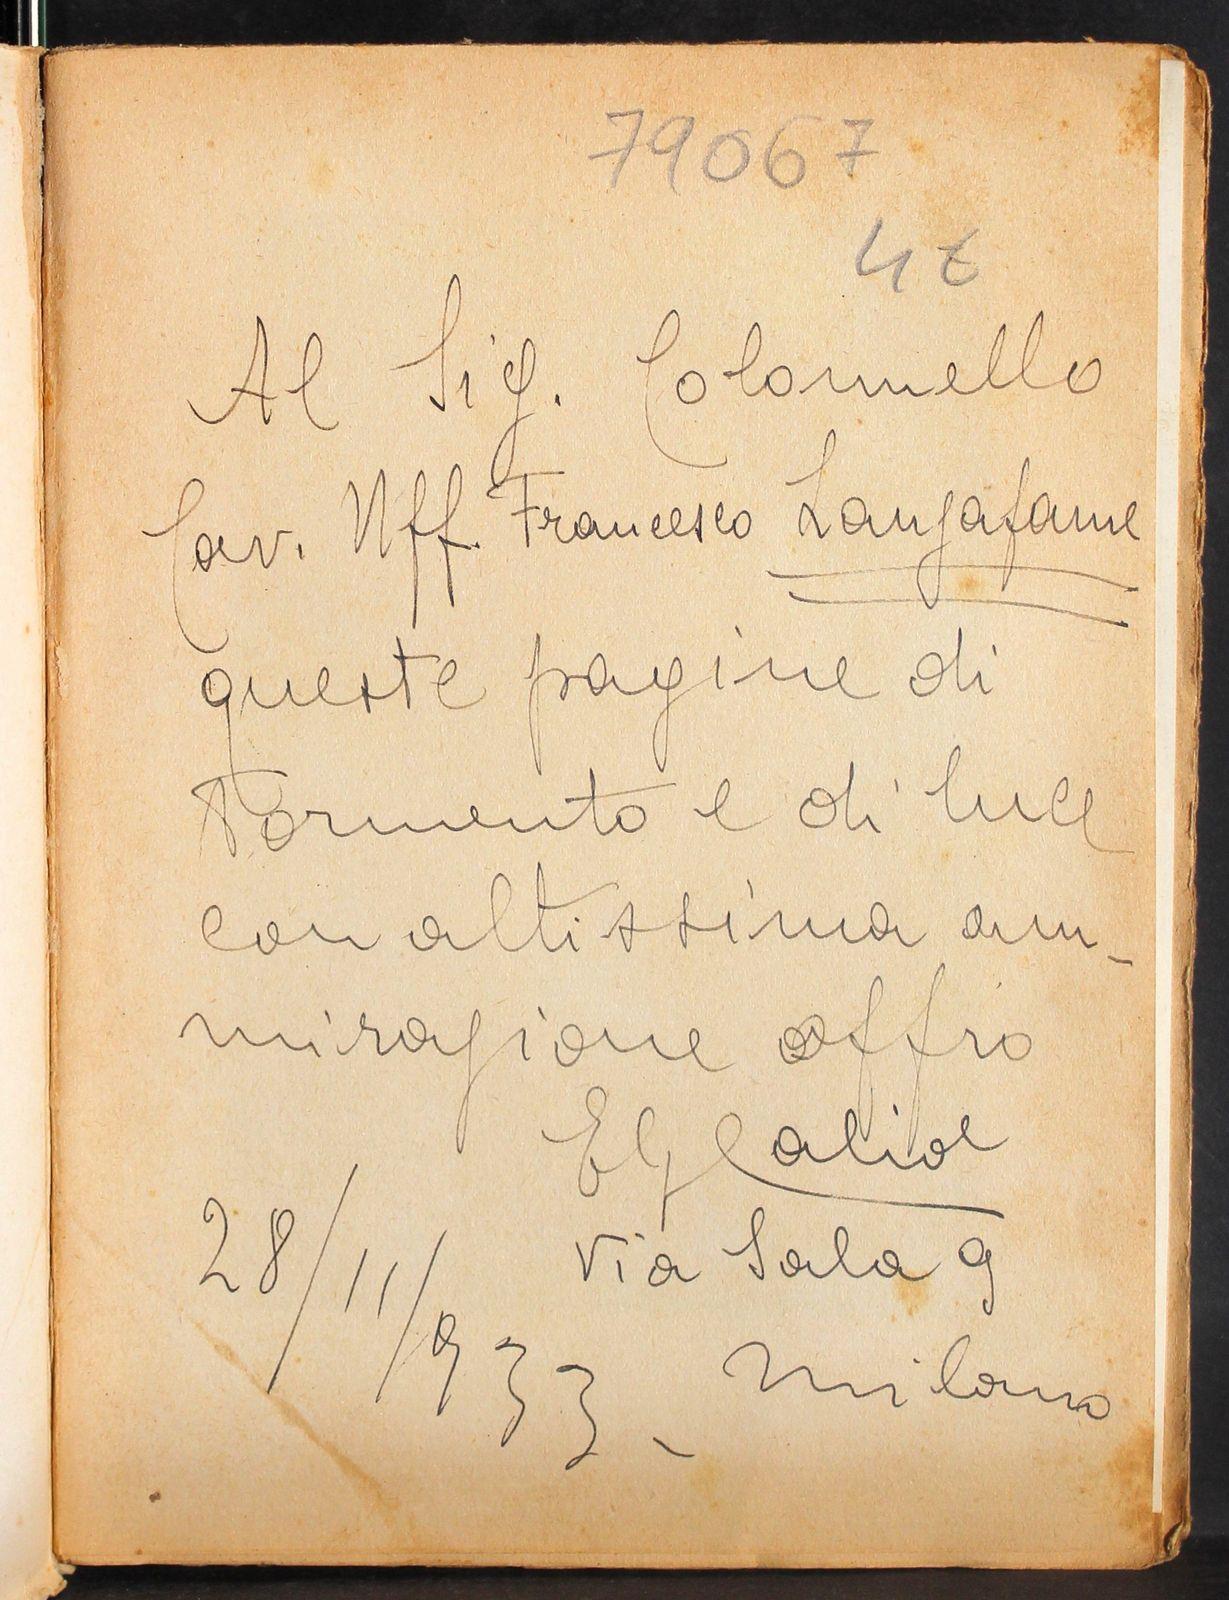 79067
4 t
Al Sig. Colonnello
Cav. Uff. Francesco Lanzafame
queste pagine di
tormento e di luce
con altissima am-
mirazione offro
28/11/933 -
Via Sala 9
Milano